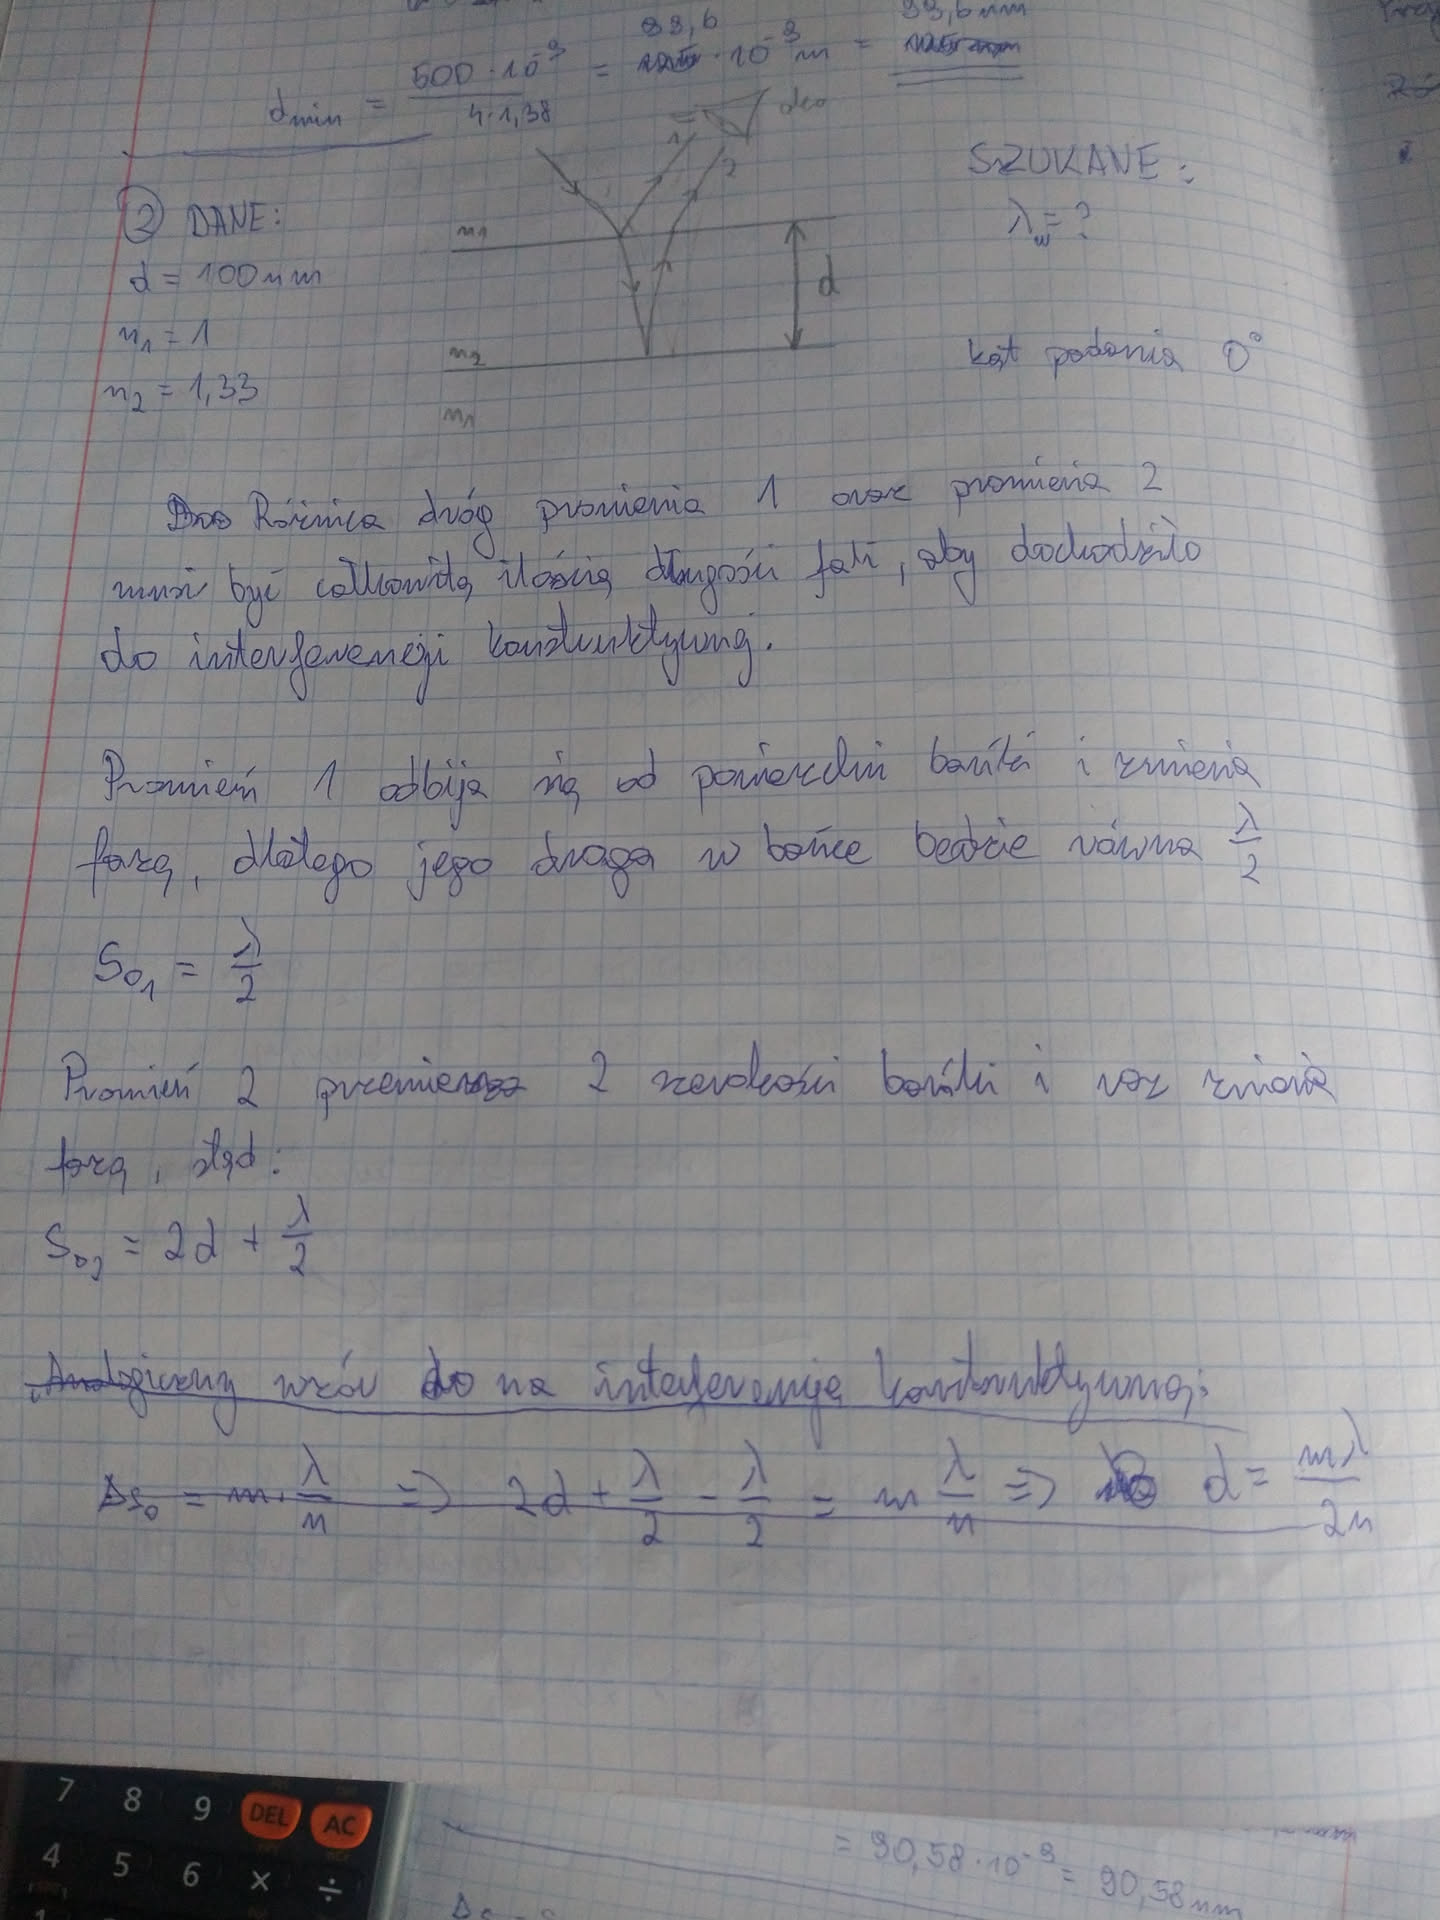 d min = 500·10⁻⁹ / 4·1,38 = 99,6 ·10⁻⁹ m = 99,6 nm
② DANE:
SZUKANE:
d = 100 nm
λw = ?
n₁ = 1
n₂ = 1,33
kąt padania 0°
n₁
n₂
n₁
1
2
d
Różnica dróg promienia 1 oraz promienia 2
musi być całkowitą ilością długości fali, aby dochodziło
do interferencji konstruktywnej.
Promień 1 odbija się od powierzchni bańki i zmienia
fazę, dlatego jego droga w bańce będzie równa λ/2
S₀₁ = λ/2
Promień 2 przemierza 2 szerokości bańki i raz zmienia
fazę, stąd:
S₀₂ = 2d + λ/2
Analogiczny wzór do na interferencję konstruktywną:
ΔS₀ = m·λ/n => 2d + λ/2 - λ/2 = m λ/n => d = mλ/2n
7 8 9 DEL AC
4 5 6 × ÷
1
= 90,58·10⁻⁹ = 90,58 nm